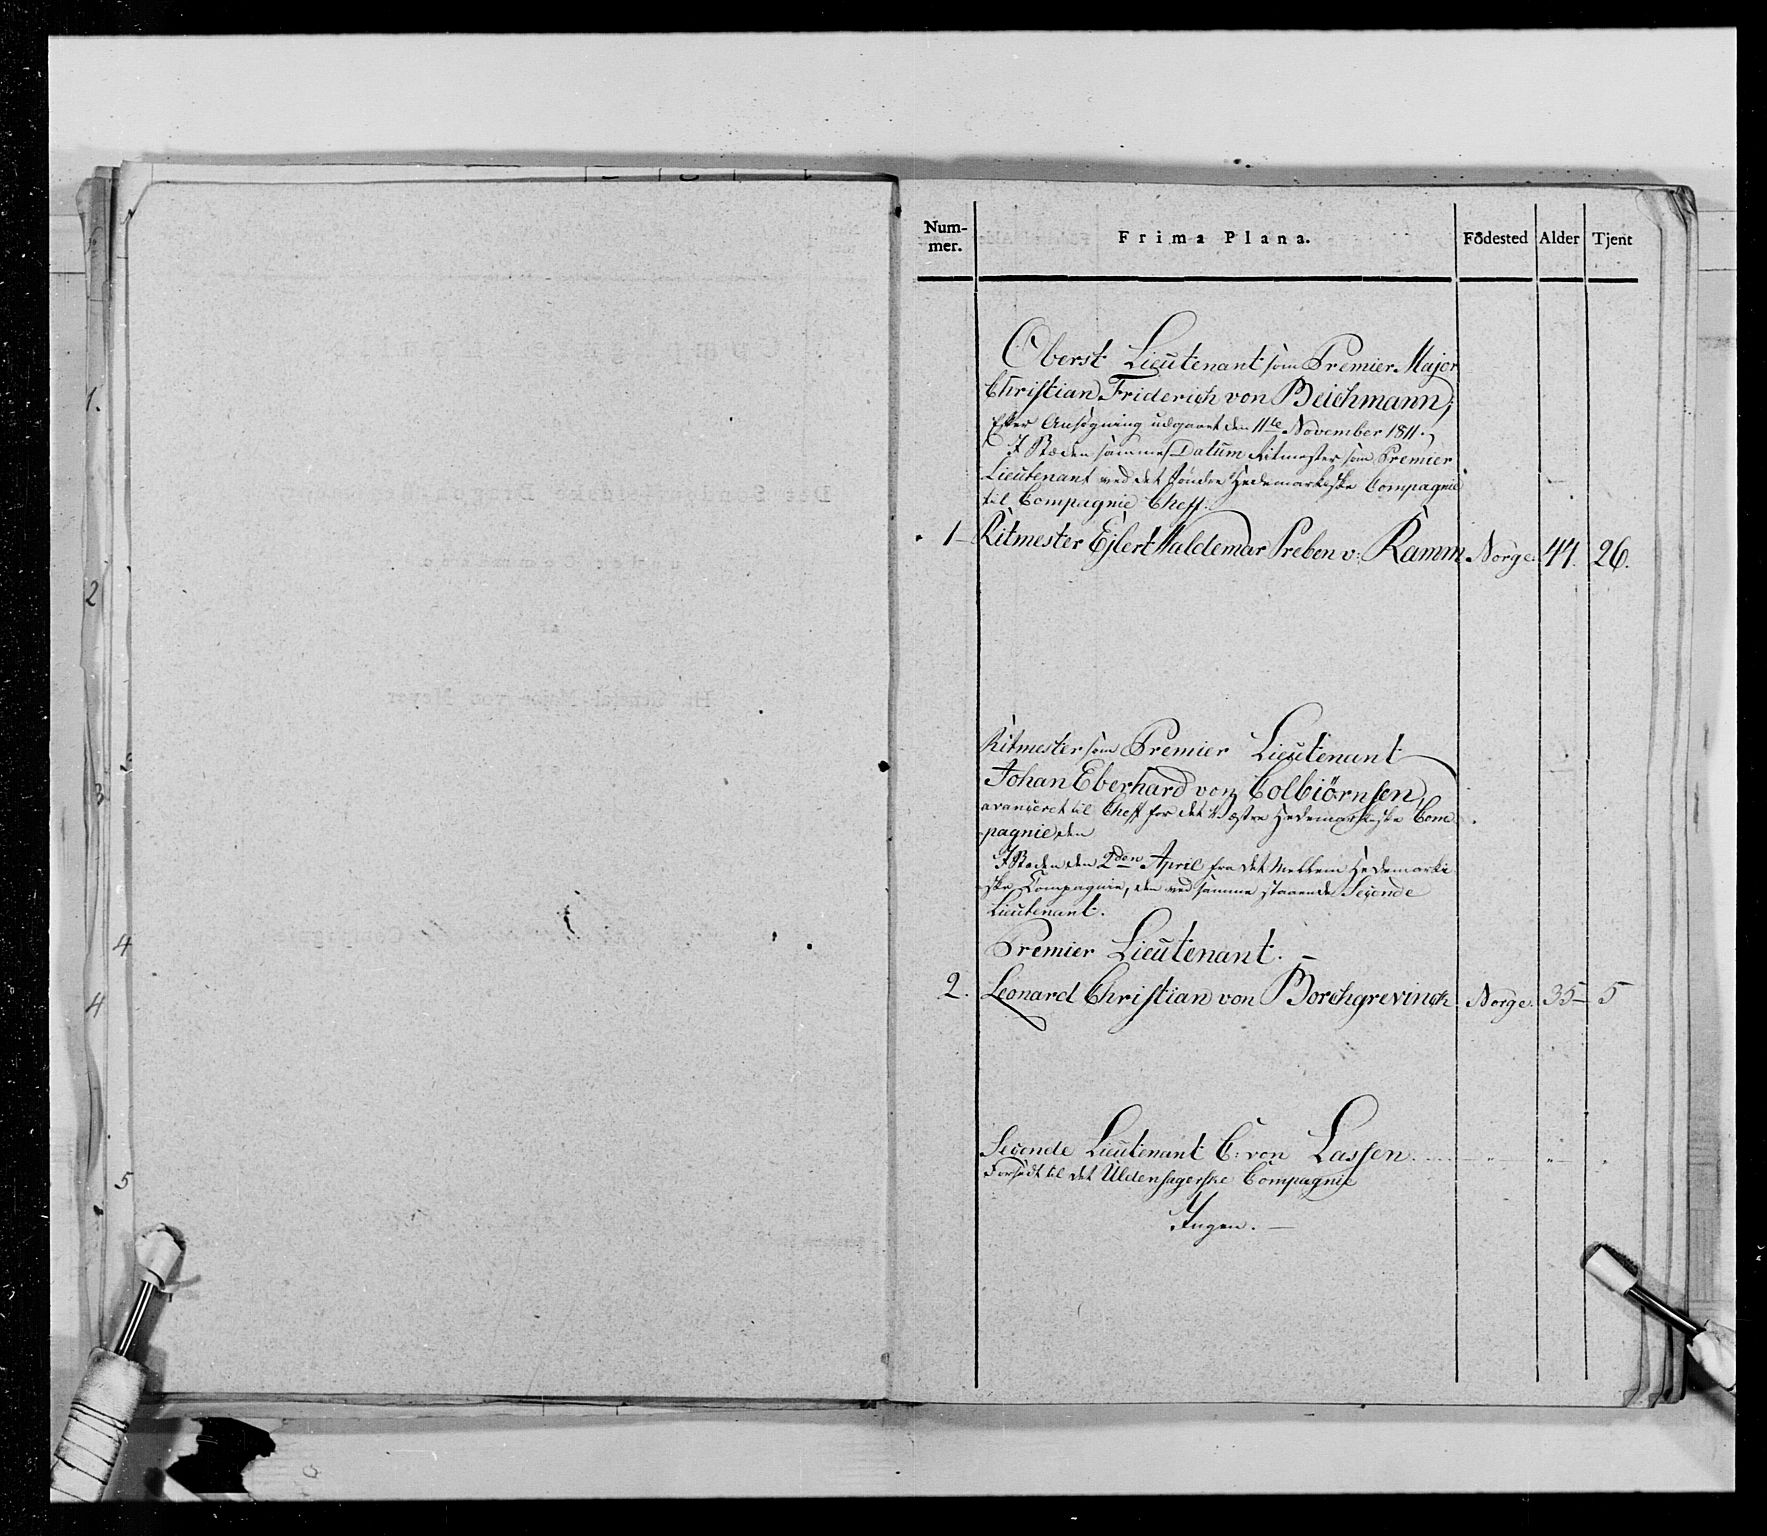 1.
2
3
3
4
4
5
Num-
mer.
Frima Plana.
Födested
Alder
Tjent
Oberst Lieutenant som Premier Major
Christian Friderich von Beichmann,
Efter Ansögning udgaaet den 11te November 1811.
I Steden samme Datum Ritmester som Premier
Lieutenant ved det söndre Hedemarkske Compagnie
til Compagnie Cheff.
1 Ritmester Ejlert Waldemar Preben v: Ramm Norge. 44. 26.
Ritmester som Premier Lieutenant
Johan Eberhard von Colbiörnsen,
avanceret til Cheff for det Westre Hedemarkske Com
pagnie, den
I Steden den 2den April fra det Mellem Hedemarki
ske Compagnie, den ved samme staaende Seconde
Lieutenant.
Premier Lieutenant. —
2. Leonard Christian von Borchgrevinch Norge. 35 — 5
Seconde Lieutenant C: von Lassen
Forsadt til det Ullensagerske Compagnie
Ingen. —